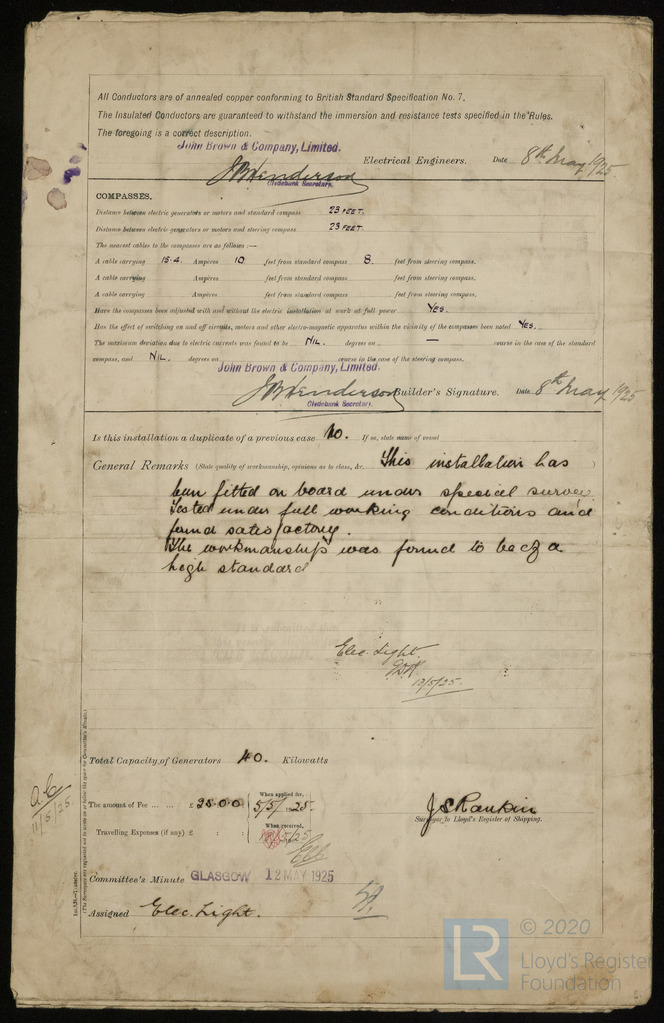 All Conductors are of annealed copper conforming to British Standard Specification No. 7.
The Insulated Conductors are guaranteed to withstand the immersion and resistance tests specified in the Rules.
The foregoing is a correct description.
John Brown & Company, Limited.
JBHenderson Electrical Engineers. Date 8th May 1925.
Clydebank Secretary.
COMPASSES.
Distance between electric generators or motors and standard compass 23 FEET.
Distance between electric generators or motors and steering compass 23 FEET.
The nearest cables to the compasses are as follows :—
A cable carrying 15.4. Ampères 10 feet from standard compass 8. feet from steering compass.
A cable carrying Ampères feet from standard compass feet from steering compass.
A cable carrying Ampères feet from standard compass feet from steering compass.
Have the compasses been adjusted with and without the electric installation at work at full power YES.
Has the effect of switching on and off circuits, motors and other electro-magnetic apparatus within the vicinity of the compasses been noted YES.
The maximum deviation due to electric currents was found to be NIL. degrees on — course in the case of the standard
compass, and NIL. degrees on course in the case of the steering compass.
John Brown & Company, Limited.
JBHenderson Builder's Signature. Date 8th May 1925
Clydebank Secretary.
Is this installation a duplicate of a previous case No. If so, state name of vessel
General Remarks (State quality of workmanship, opinions as to class, &c. This installation has
been fitted on board under special survey.
Tested under full working conditions and
found satisfactory.
The workmanship was found to be of a
high standard
Elec. Light.
12/5/25.
Total Capacity of Generators 40. Kilowatts
The amount of Fee ... ... £ 25:0:0 When applied for, 5/5/1925.
Travelling Expenses (if any) £ : : When received,
J S Rankin
Surveyor to Lloyd's Register of Shipping.
11/5/25.
Committee's Minute GLASGOW 12 MAY 1925
Assigned Elec. Light.
LR © 2020
Lloyd's Register
Foundation